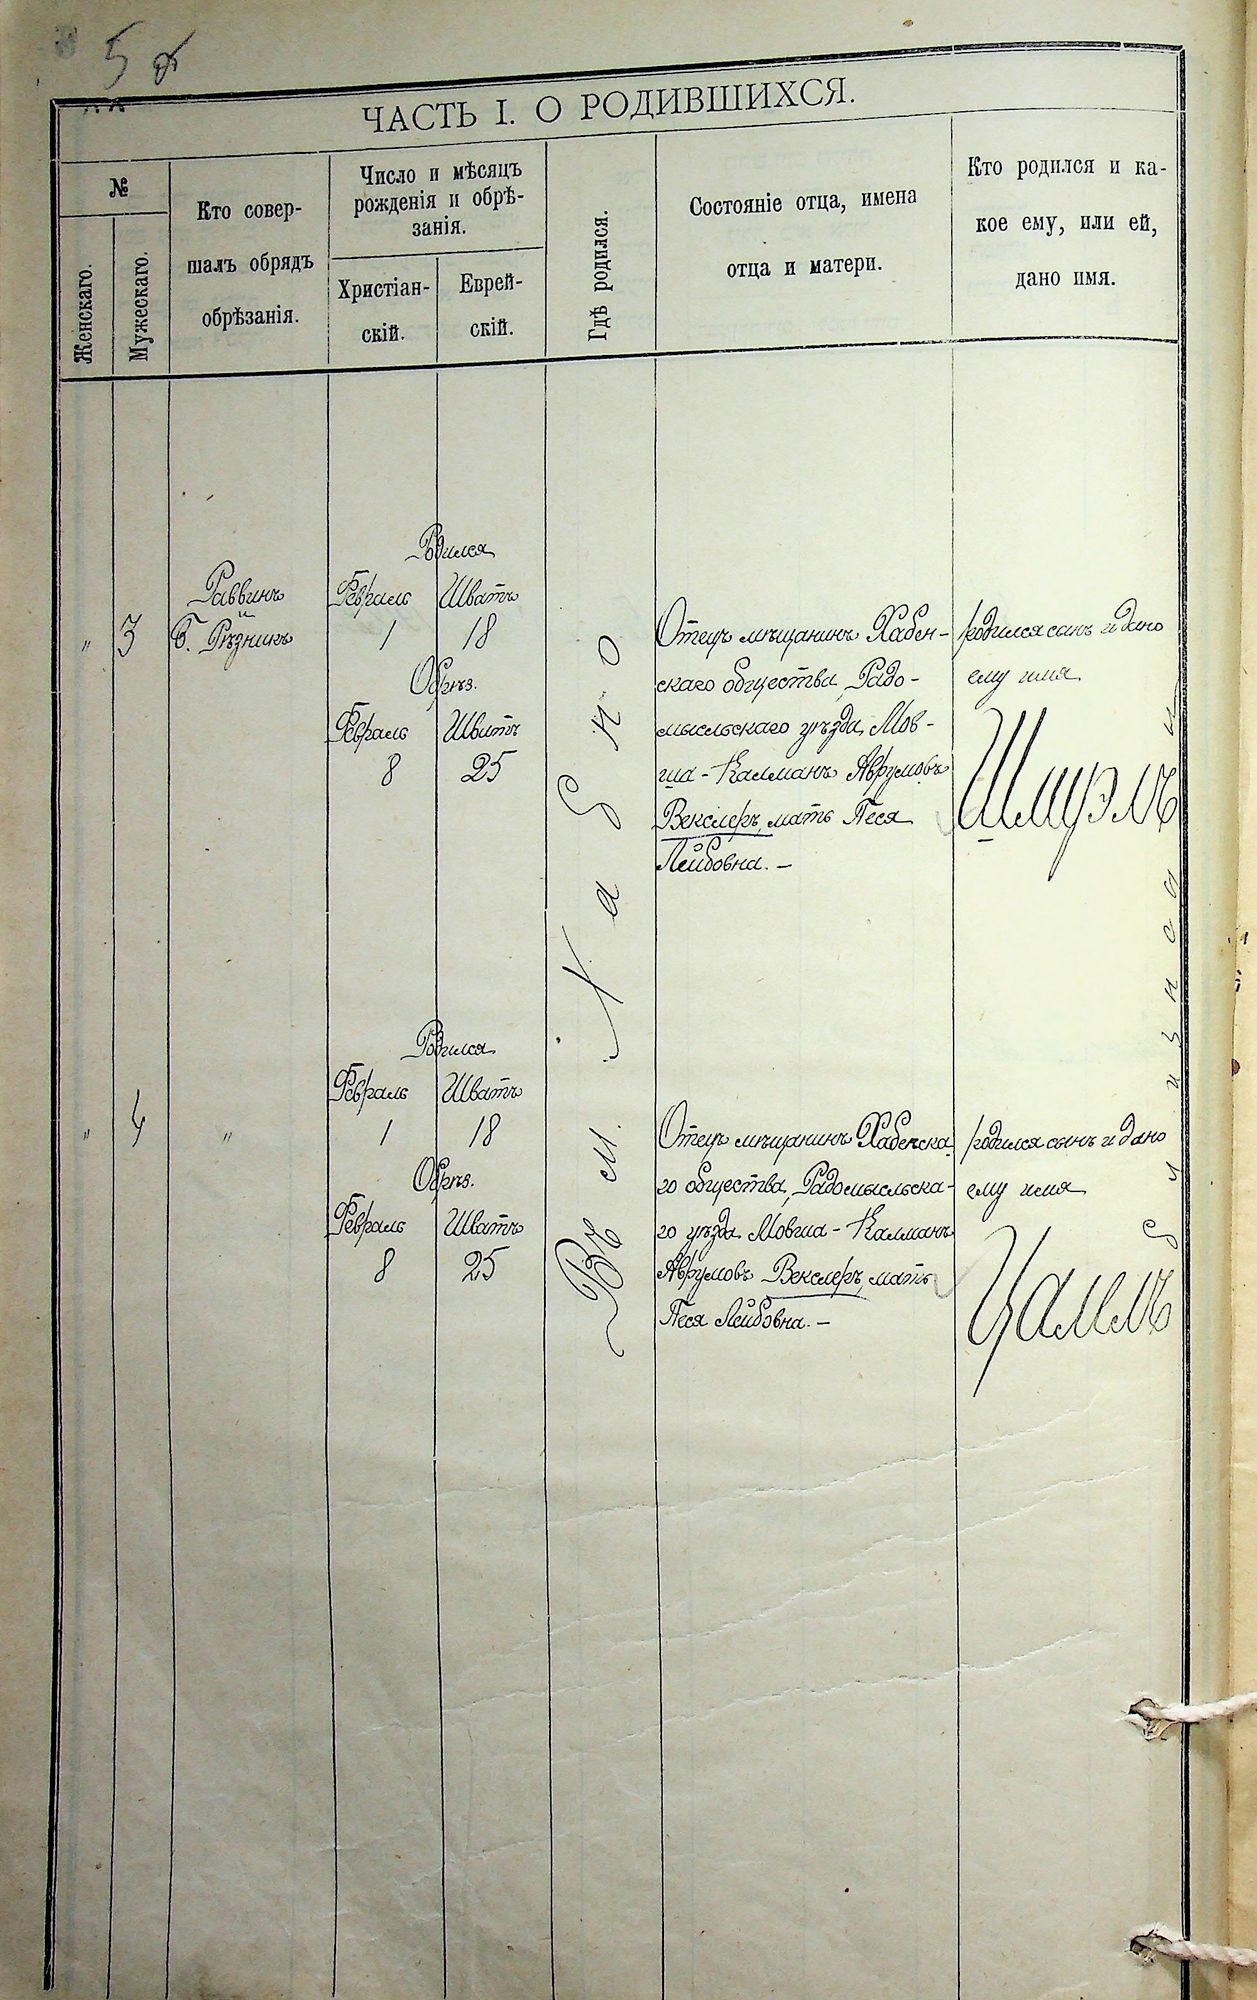 5 об
ЧАСТЬ I. О РОДИВШИХСЯ.
№
Женскаго.
Мужескаго.
Кто совер-
шалъ обрядъ
обрѣзанія.
Число и мѣсяцъ
рожденія и обрѣ-
занія.
Христіан-
скій.
Еврей-
скій.
Гдѣ родился.
Состояніе отца, имена
отца и матери.
Кто родился и ка-
кое ему, или ей,
дано имя.
"
3
Раввинъ
Б. Рѣзникъ
Родился
Февраль Шватъ
1 18
Обрѣз.
Февраль Шватъ
8 25
Въ м. Хабно
Отецъ мѣщанинъ Хабен-
скаго общества, Радо-
мысльскаго уѣзда, Мов-
ша - Калманъ Аврумовъ
Векслеръ, мать Песя
Лейбовна. —
родился сынъ и дано
ему имя
Шмуэль
"
4
"
Родился
Февраль Шватъ
1 18
Обрѣз.
Февраль Шватъ
8 25
Отецъ мѣщанинъ Хабенска
го общества, Радомысльска-
го уѣзда Мовша - Калманъ
Аврумовъ Векслеръ, мать
Песя Лейбовна. —
родился сынъ и дано
ему имя
Цалель
близнецы